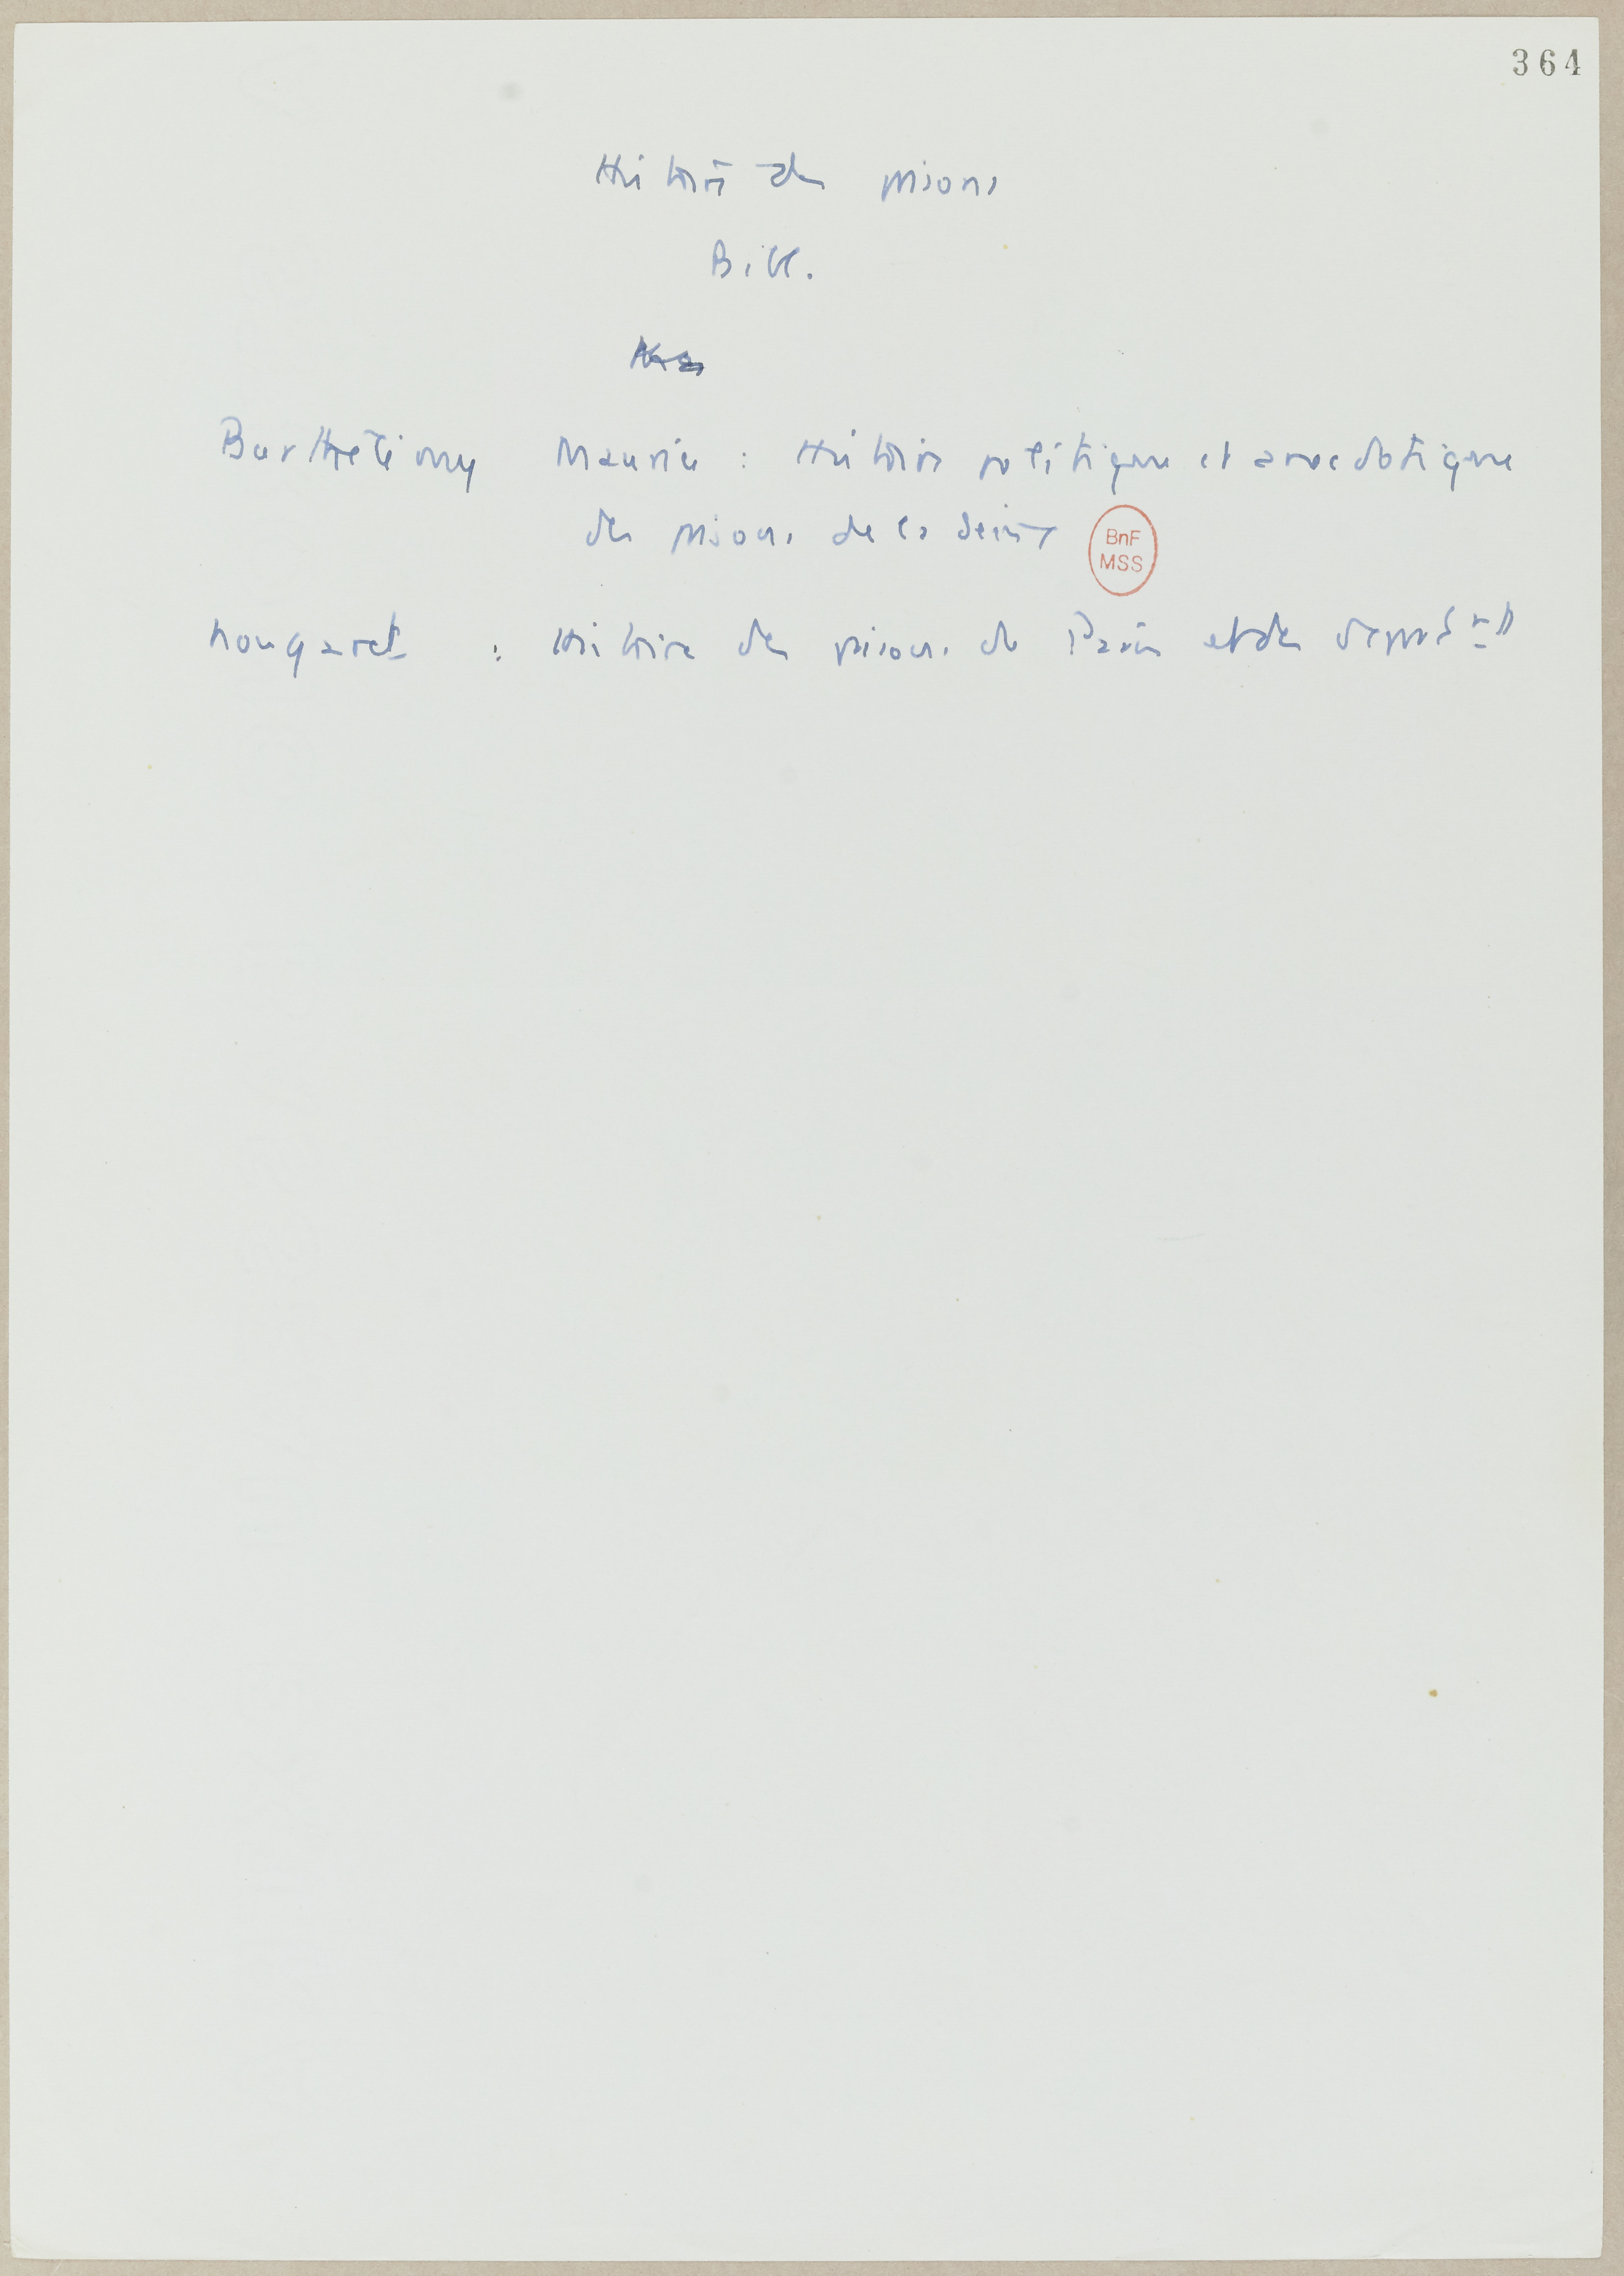 364
Histoire des prisons
Bibl.
Barthélémy Maurice : Histoire politique et anecdotique
des prisons de la Seine
BnF
MSS
Nougaret : Histoire des prisons de Paris et des départ<sup>nts</sup>